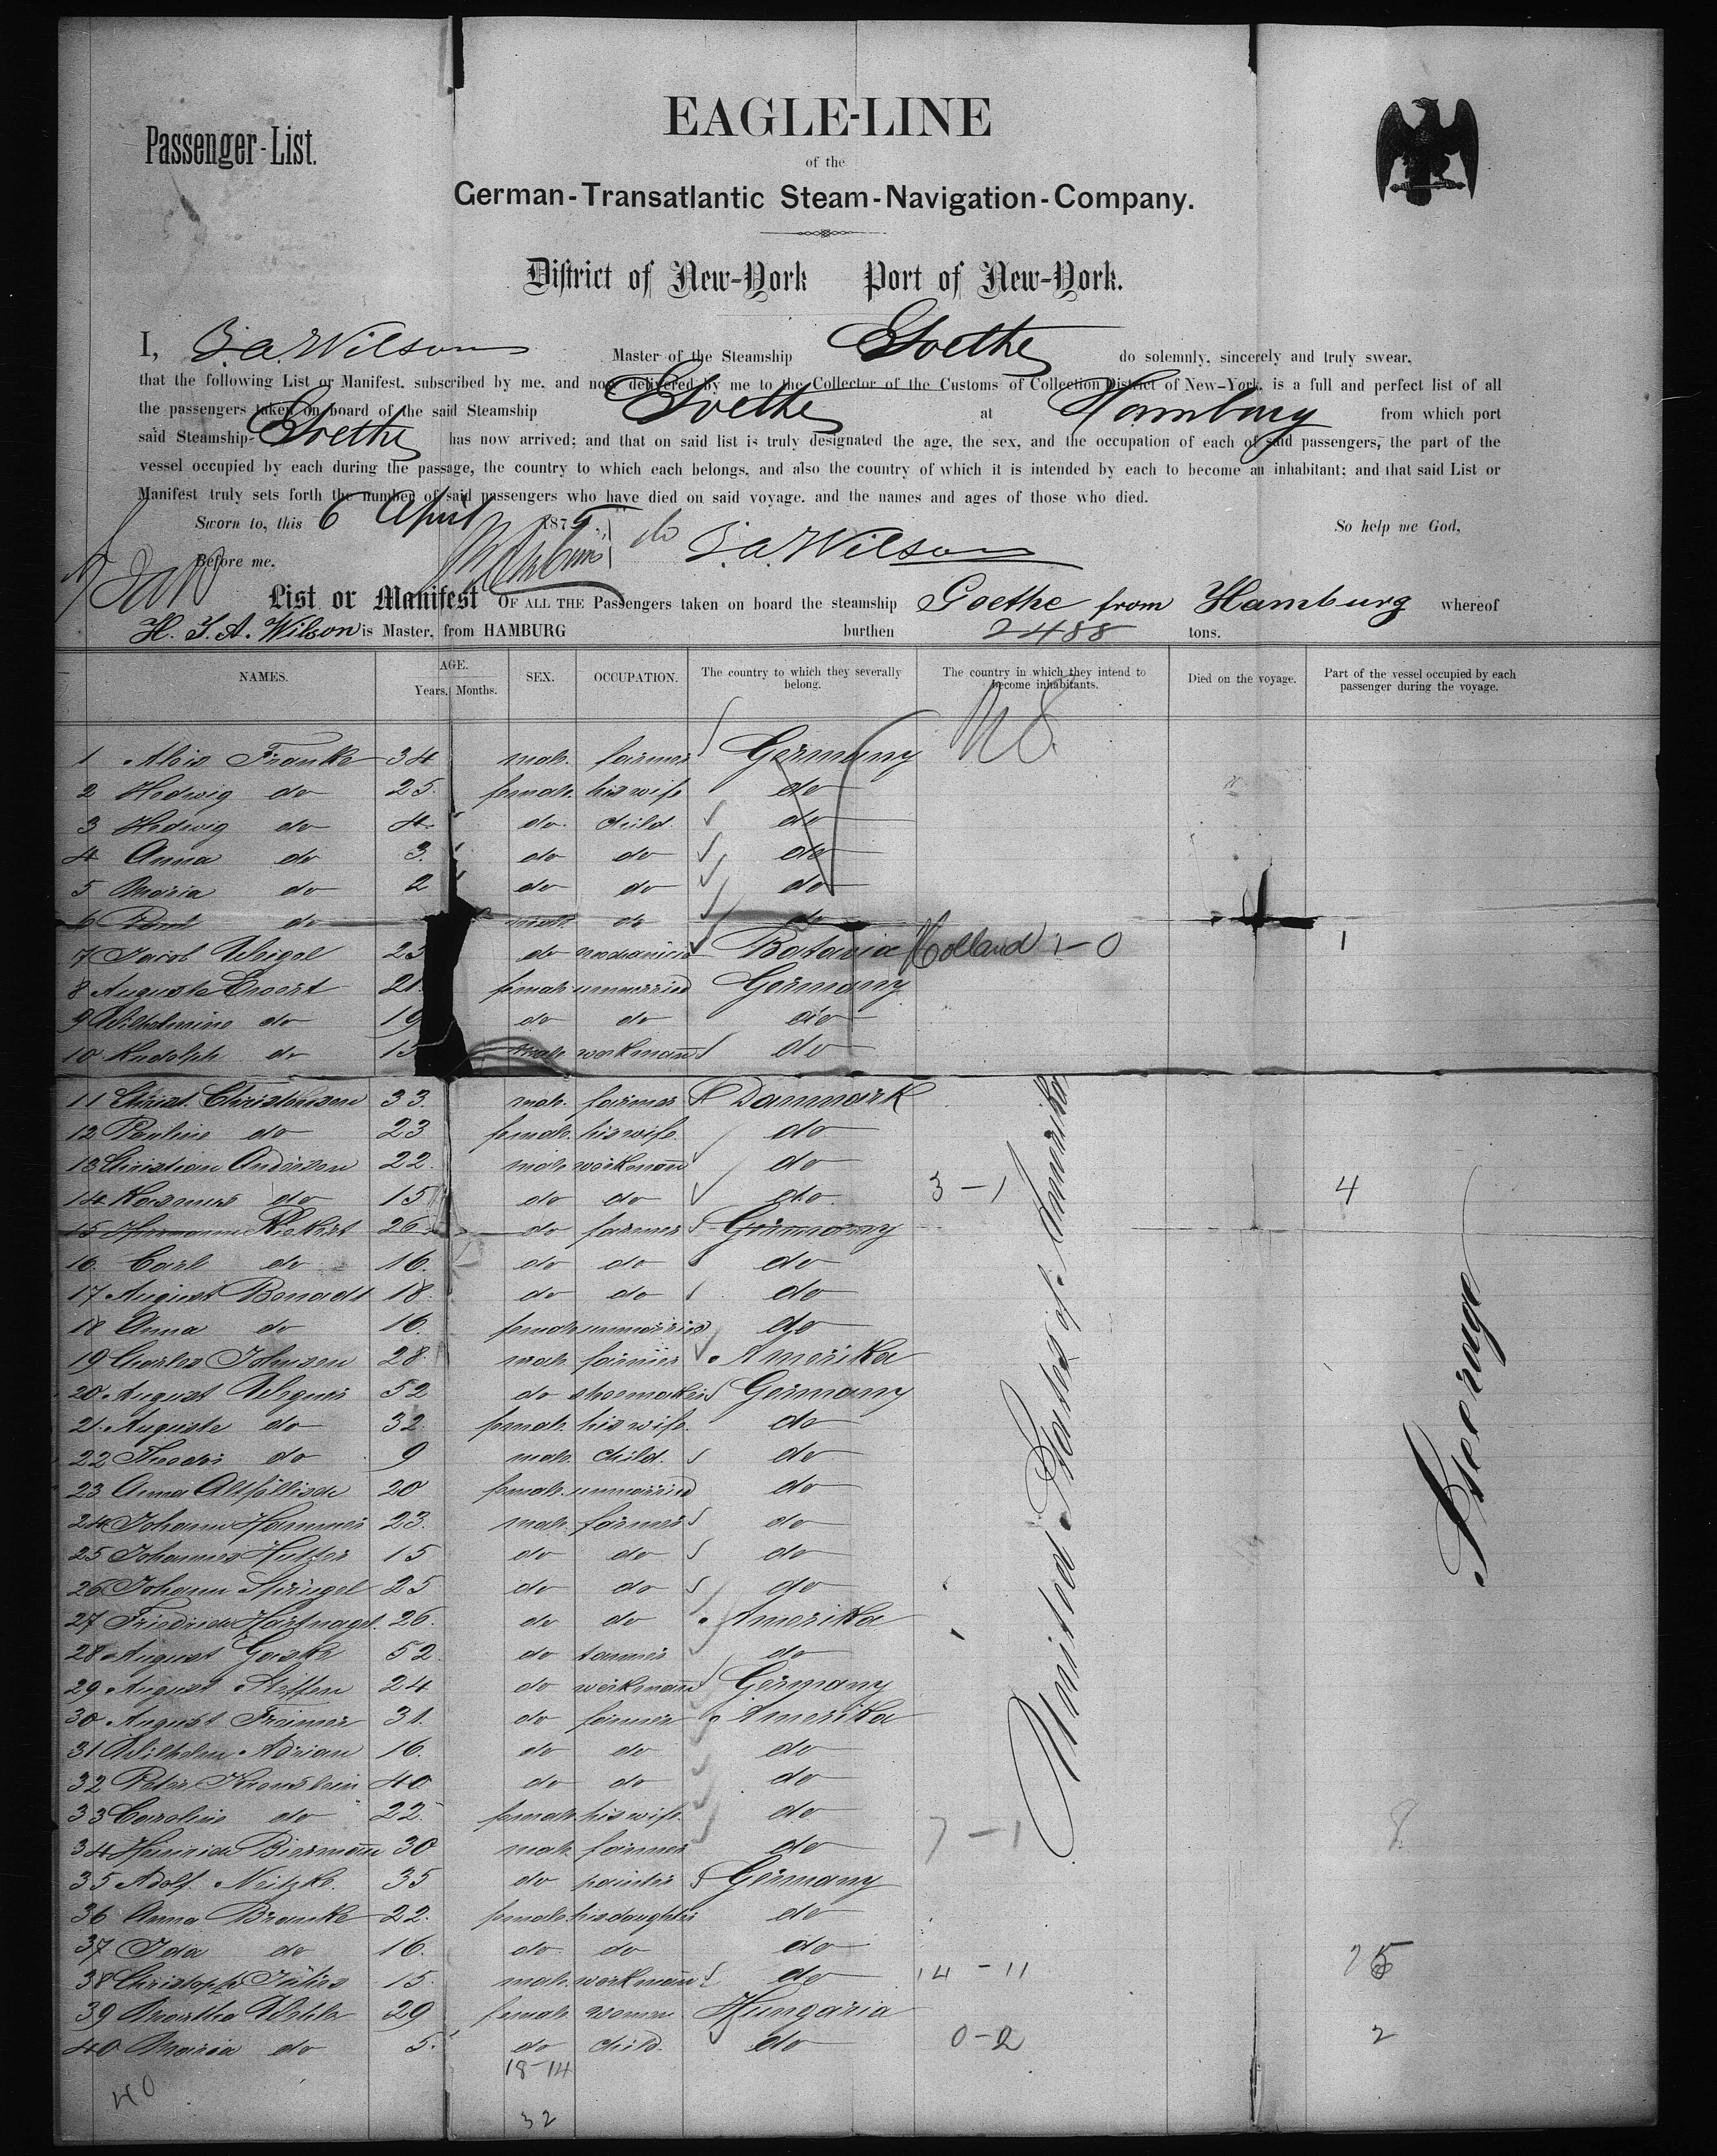 Passenger-List.
EAGLE-LINE
of the
German-Transatlantic Steam-Navigation-Company.
District of New-York Port of New-York.
I, J. A. Wilson Master of the Steamship Goethe do solemnly, sincerely and truly swear,
that the following List or Manifest, subscribed by me, and now delivered by me to the Collector of the Customs of Collection District of New-York, is a full and perfect list of all
the passengers taken on board of the said Steamship Goethe at Hamburg from which port
said Steamship Goethe has now arrived; and that on said list is truly designated the age, the sex, and the occupation of each of said passengers, the part of the
vessel occupied by each during the passage, the country to which each belongs, and also the country of which it is intended by each to become an inhabitant; and that said List or
Manifest truly sets forth the number of said passengers who have died on said voyage, and the names and ages of those who died.
Sworn to, this 6 April 1875. So help me God,
Before me, J. A. Wilson
List or Manifest OF ALL THE Passengers taken on board the steamship Goethe from Hamburg whereof
H. J. A. Wilson is Master, from HAMBURG burthen 2488 tons.
NAMES. AGE. Years. Months. SEX. OCCUPATION. The country to which they severally belong. The country in which they intend to become inhabitants. Died on the voyage. Part of the vessel occupied by each passenger during the voyage.
1 Alois Franke 34 male farmer Germany
2 Hedwig do 25. female his wife do
3 Hedwig do 4. do child. do
4 Anna do 3. do do do
5 Maria do 2 do do do
6 Paul do male do do
7 Jacob Weigel 23 do mechanicis Batavia Holland 1-0 1
8 Auguste 21 female unmarried Germany
9 Wilhelmine do 19 do do do
10 Rudolph do 15 male workmann do
11 Christ. Christensen 33. male farmer Danmark
12 Pauline do 23 female his wife. do
13 Christian Andersen 22. male workmann do
14 Rasmus do 15 do do do 3-1 4
15 Hermann 26 do farmer Germany
16. Carl do 16. do do do
17 August Bonadt 18. do do do
18 Anna do 16. female unmarried do
19 Charles Johnsen 28. male farmer Amerika
20 August Wegner 52 do shoemaker Germany
21 Auguste do 32. female his wife. do
22 Theodor do 9 male child. do
23 Anna 20 female unmarried do
24 Johann Hammer 23. male farmer do
25 Johannes 15 do do do
26 Johann 25 do do do
27 Friedrich Hartnagel. 26. do do Amerika
28 August Gaske 52. do tanner do
29 August Steffen 24 do workmann Germany
30 August 31. do farmer Amerika
31 Wilhelm Adrian 16. do do do
32 Peter 40 do do do
33 Caroline do 22. female his wife. do
34 Heinrich Biermann 30 male farmer do 7-1 8
35 Adolf Neitzke. 35 do painter Germany
36 Anna Branke 22. female his daughter do
37 Ida do 16. do do do
38 Christoph 15. male workmann do 14-11 25
39 Martha 29 female woman Hungaria
40 Maria do 5. do child. do 0-2 2
United States of Amerika
Steerage
18-14
40
32